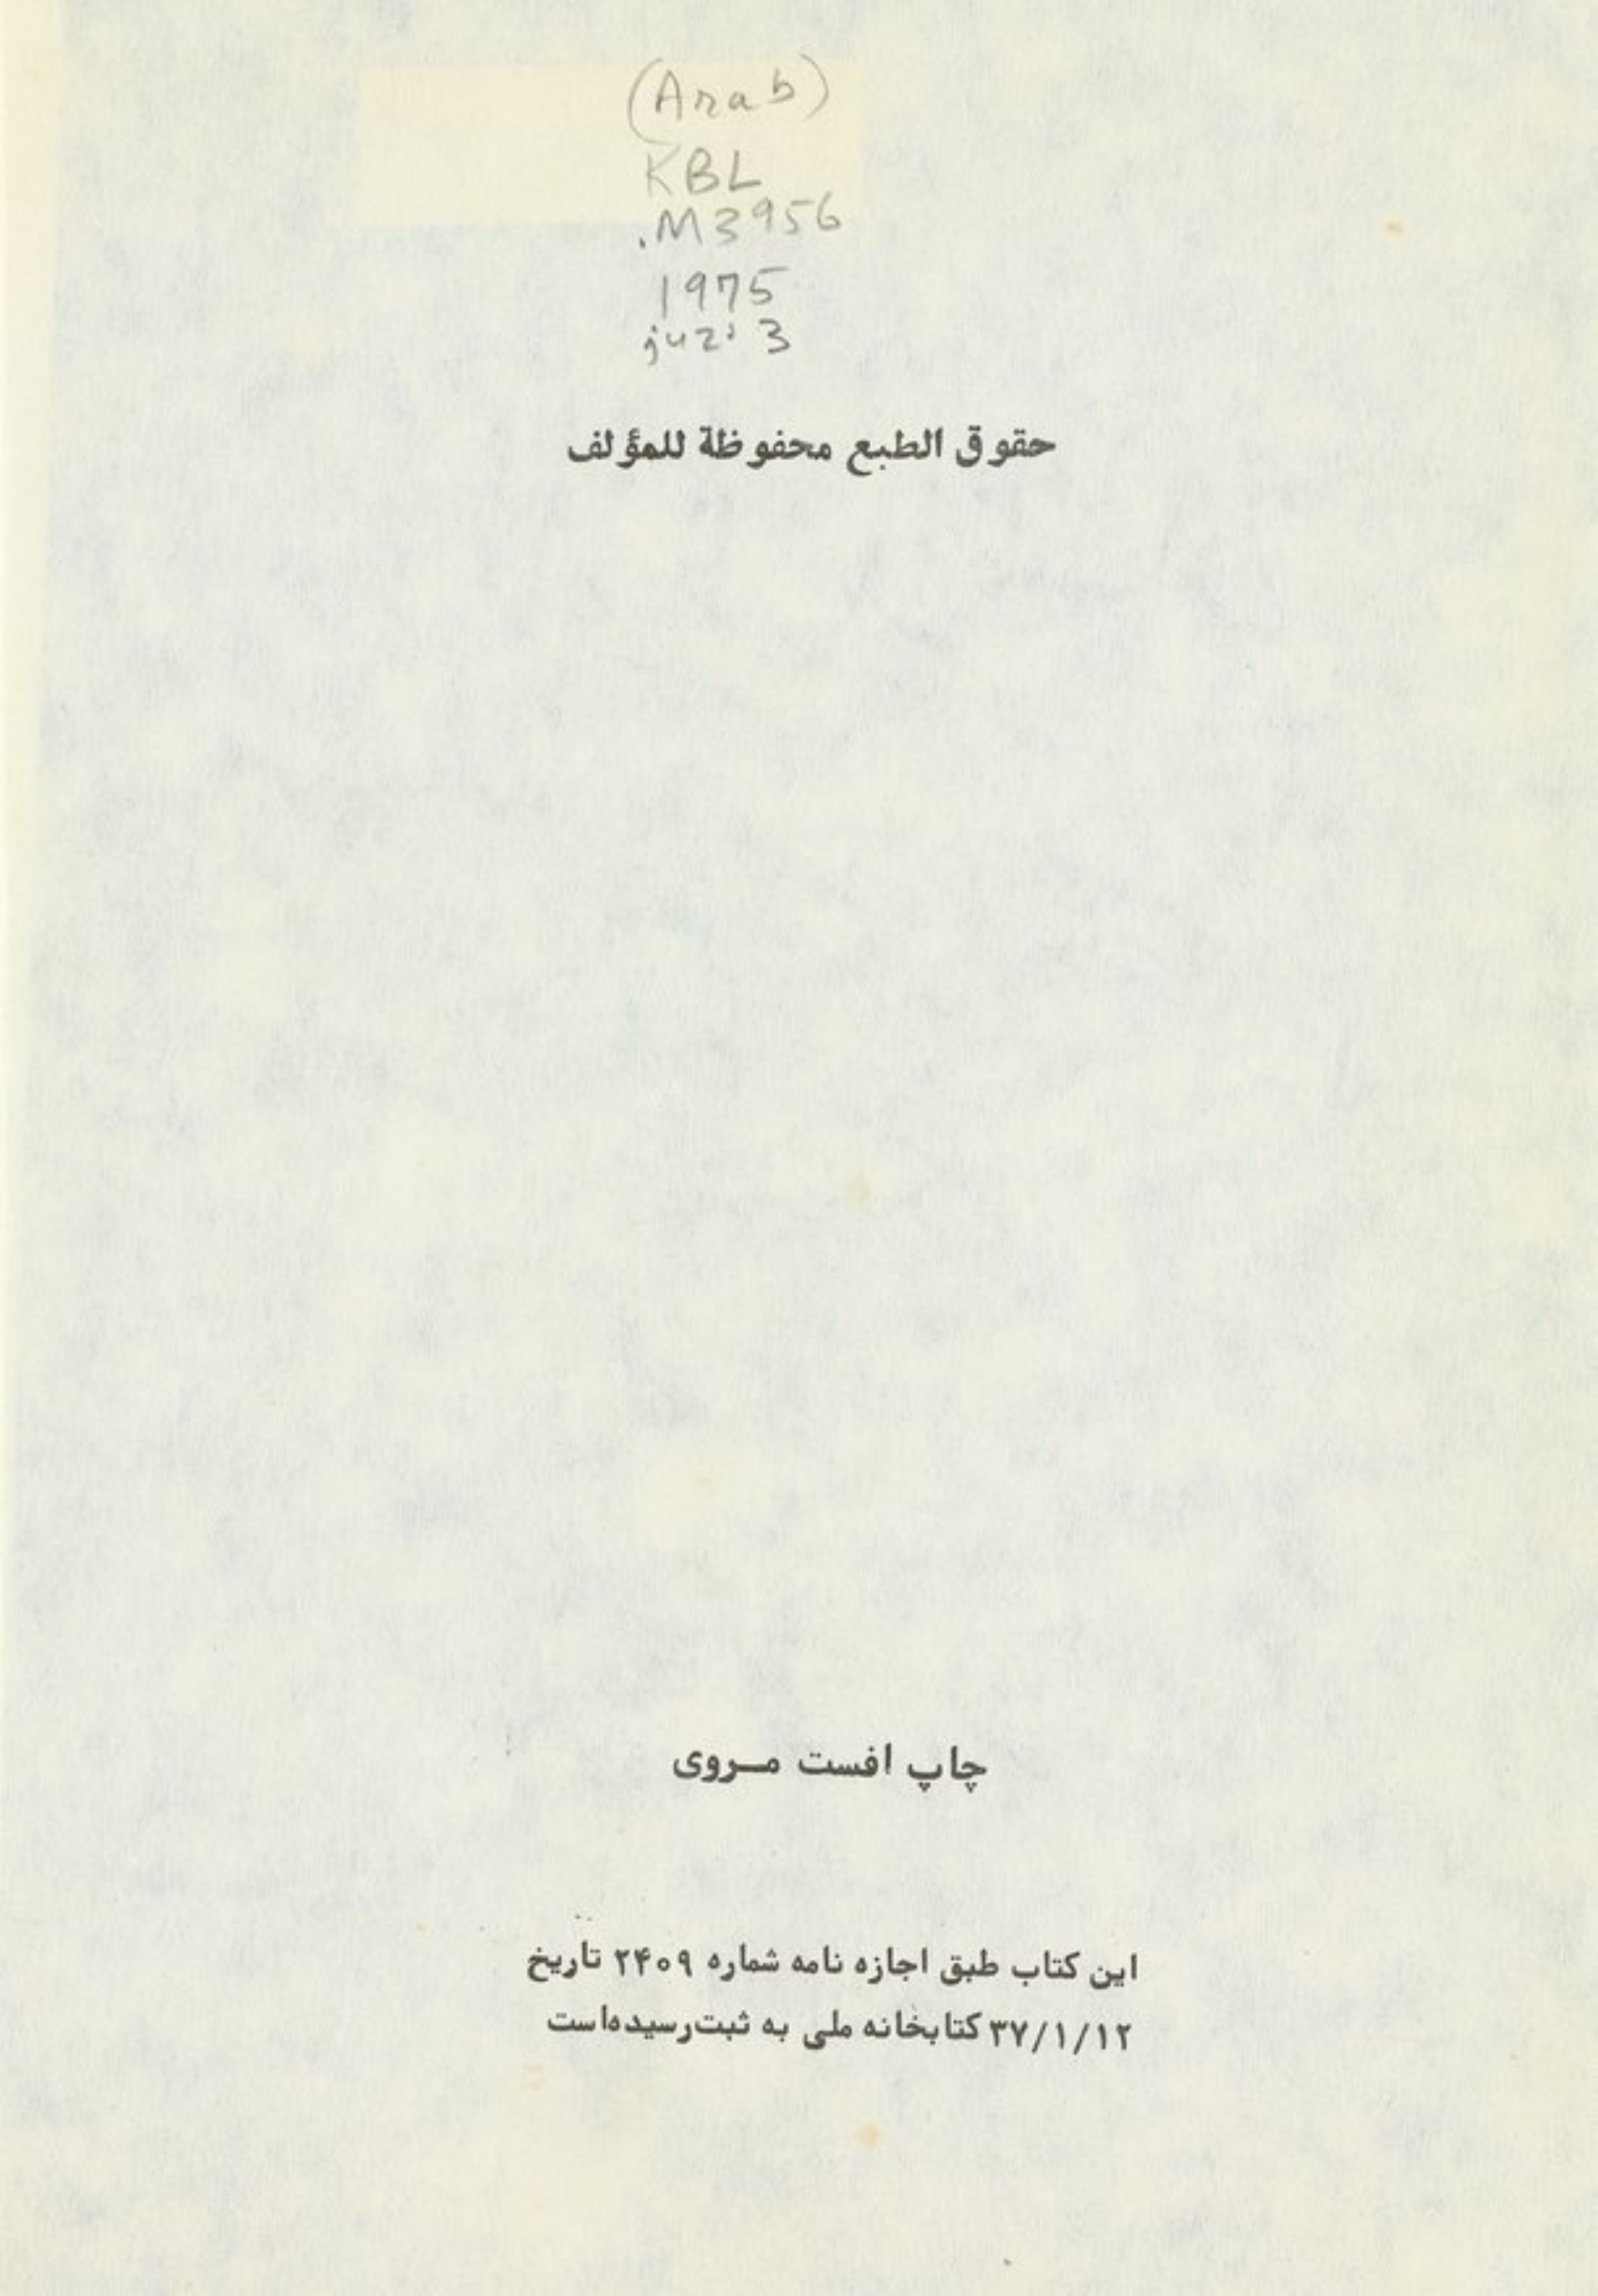 (Arab)
KBL
.M3956
1975
juz' 3
حقوق الطبع محفوظة للمؤلف
چاپ افست مــروی
این کتاب طبق اجازه نامه شماره ۲۴۰۹ تاریخ
۳۷/۱/۱۲ کتابخانه ملی به ثبت رسیده‌است